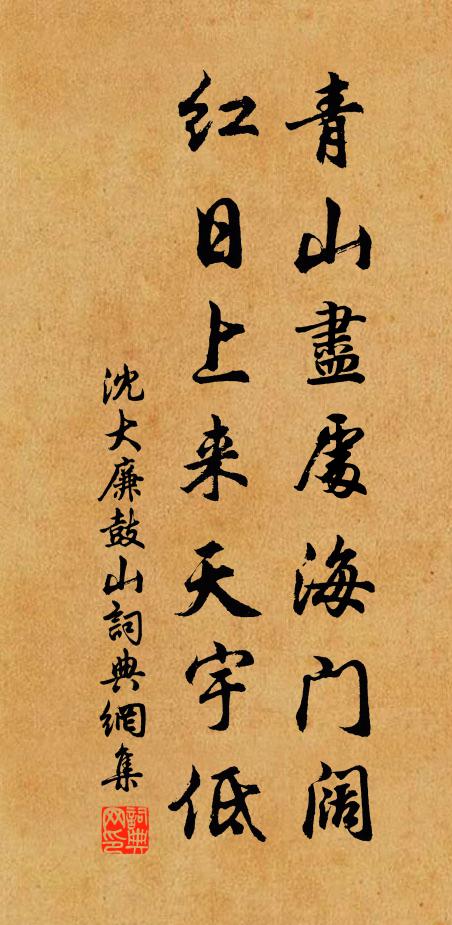 青山盡處海门阔
红日上来天宇低
沈大廉鼓山詞典網集
詞典網印